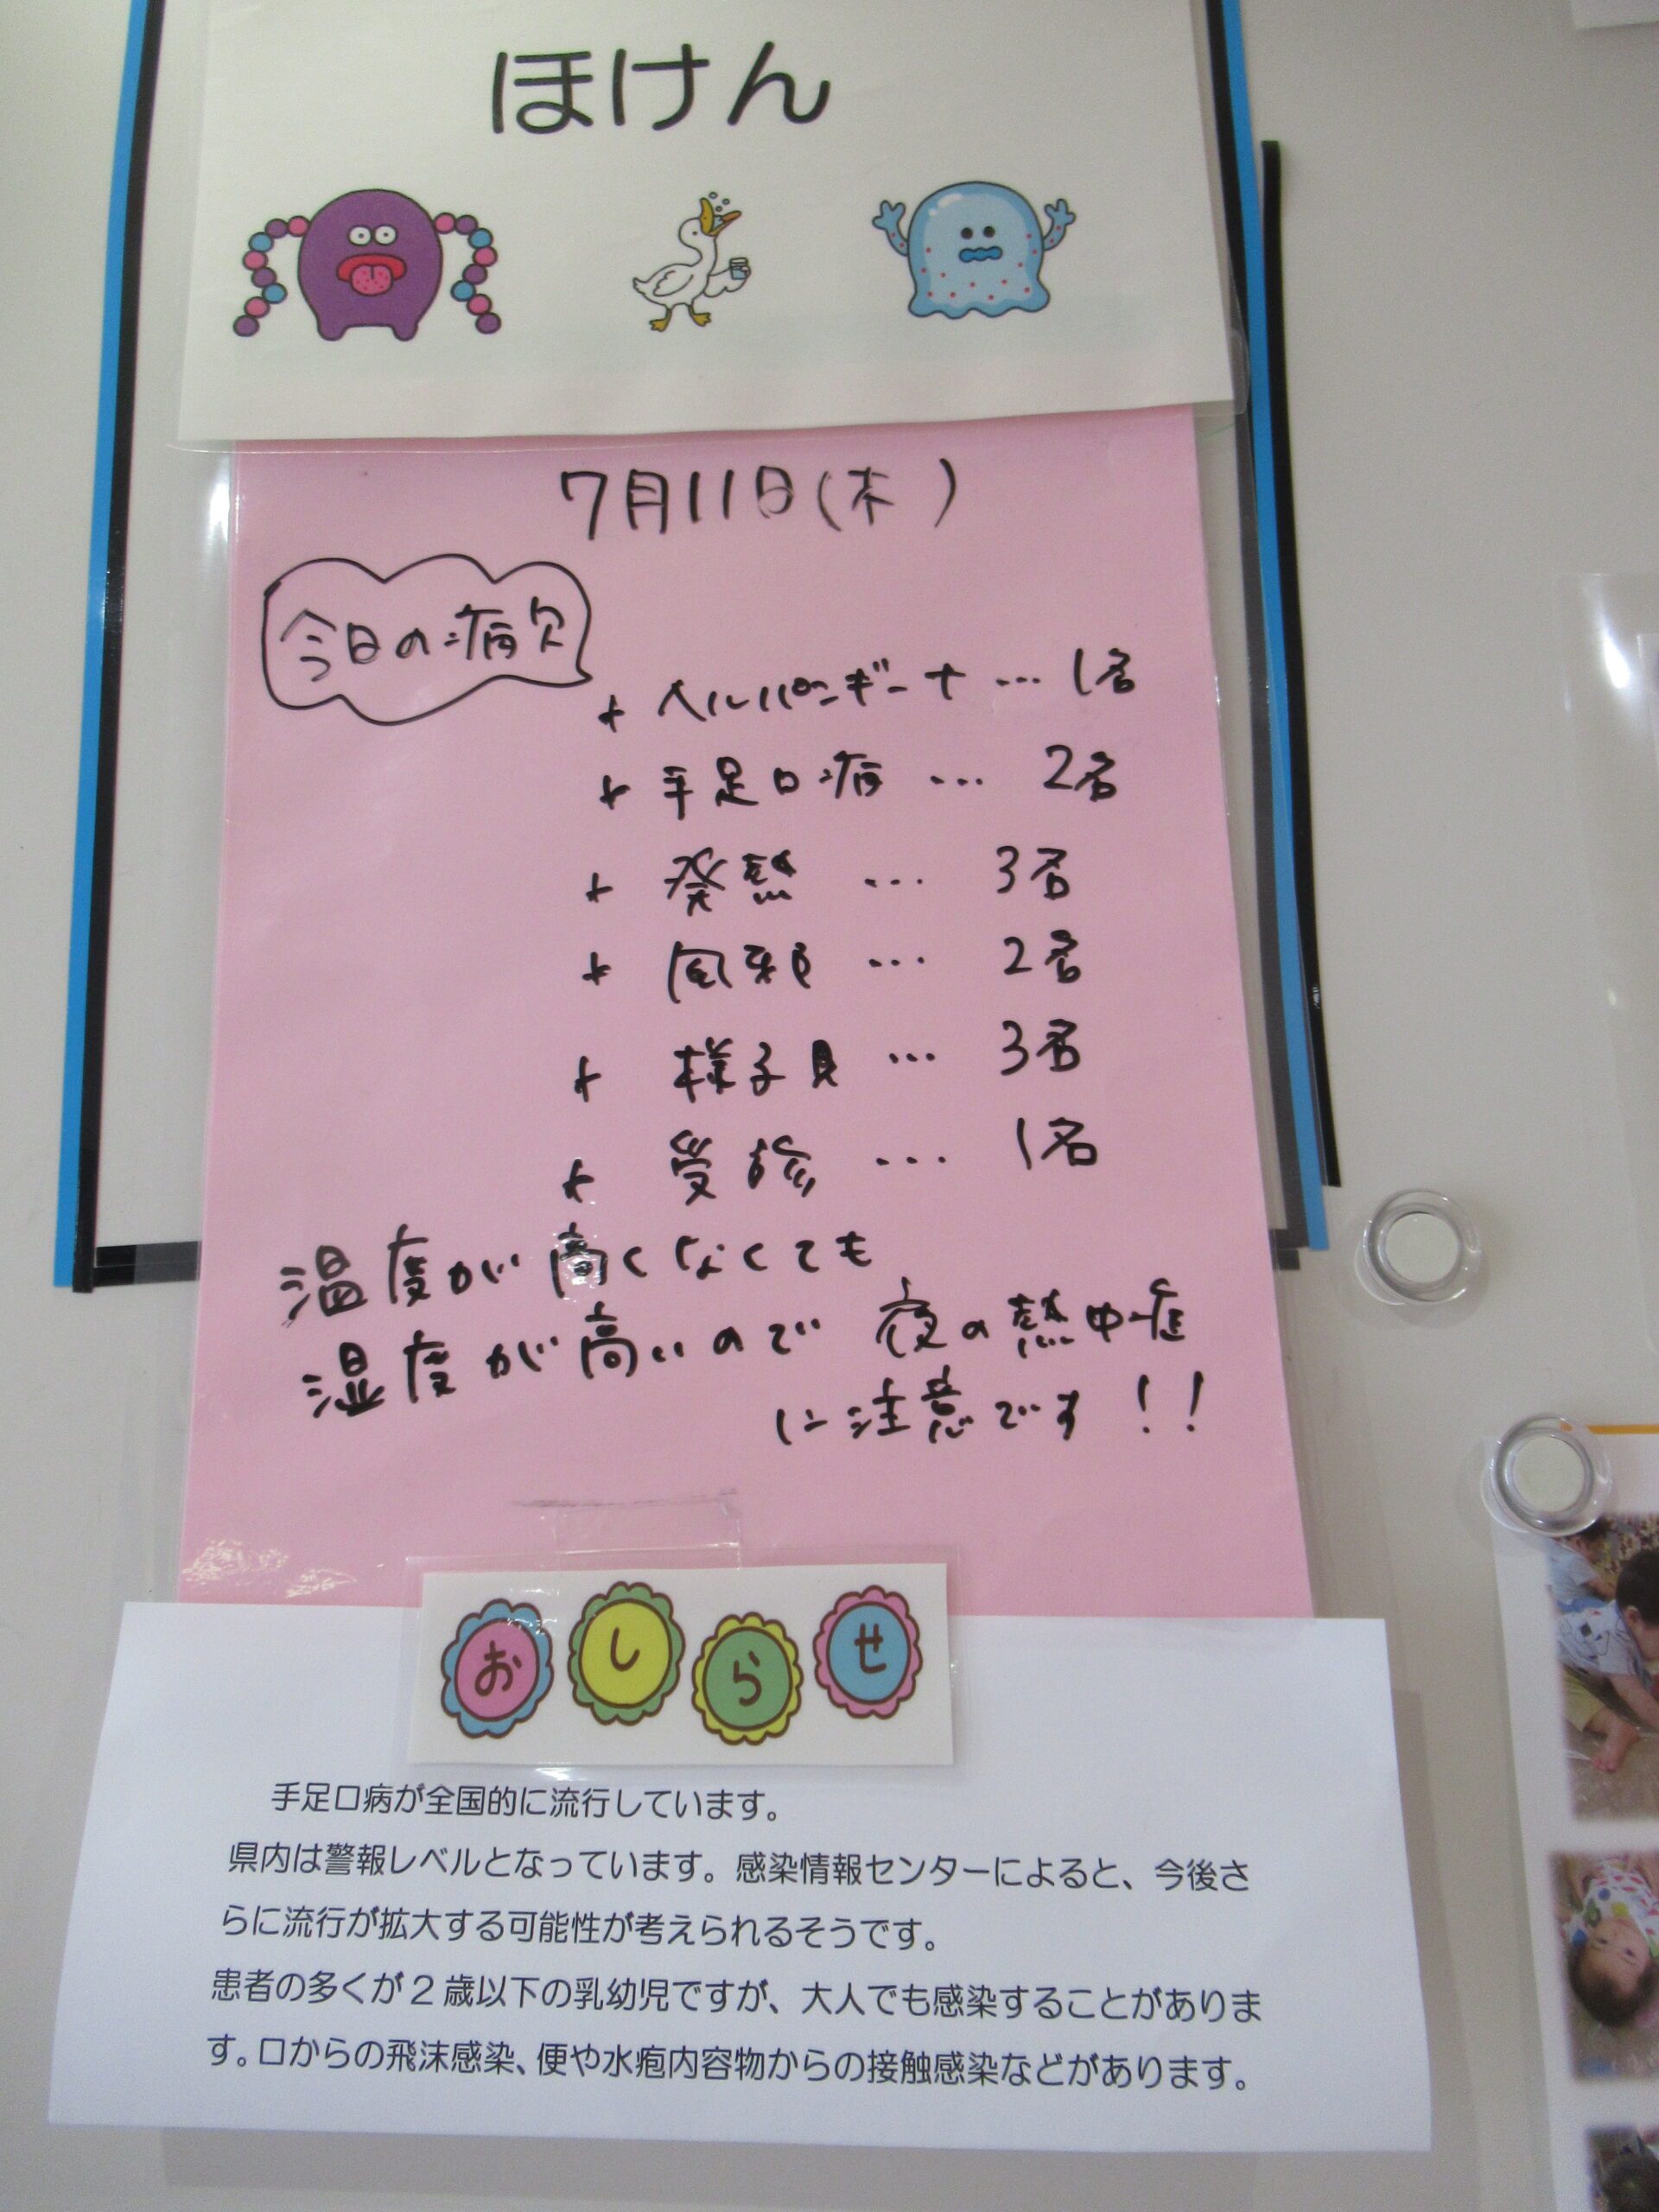 ほけん
7月11日(木)
今日の病欠
+ ヘルパンギーナ … 1名
+ 手足口病 … 2名
+ 発熱 … 3名
+ 風邪 … 2名
+ 様子見 … 3名
+ 受診 … 1名
温度が高くなくても
湿度が高いので 夜の熱中症
に注意です!!
おしらせ
手足口病が全国的に流行しています。
県内は警報レベルとなっています。感染情報センターによると、今後さ
らに流行が拡大する可能性が考えられるそうです。
患者の多くが2歳以下の乳幼児ですが、大人でも感染することがありま
す。口からの飛沫感染、便や水疱内容物からの接触感染などがあります。